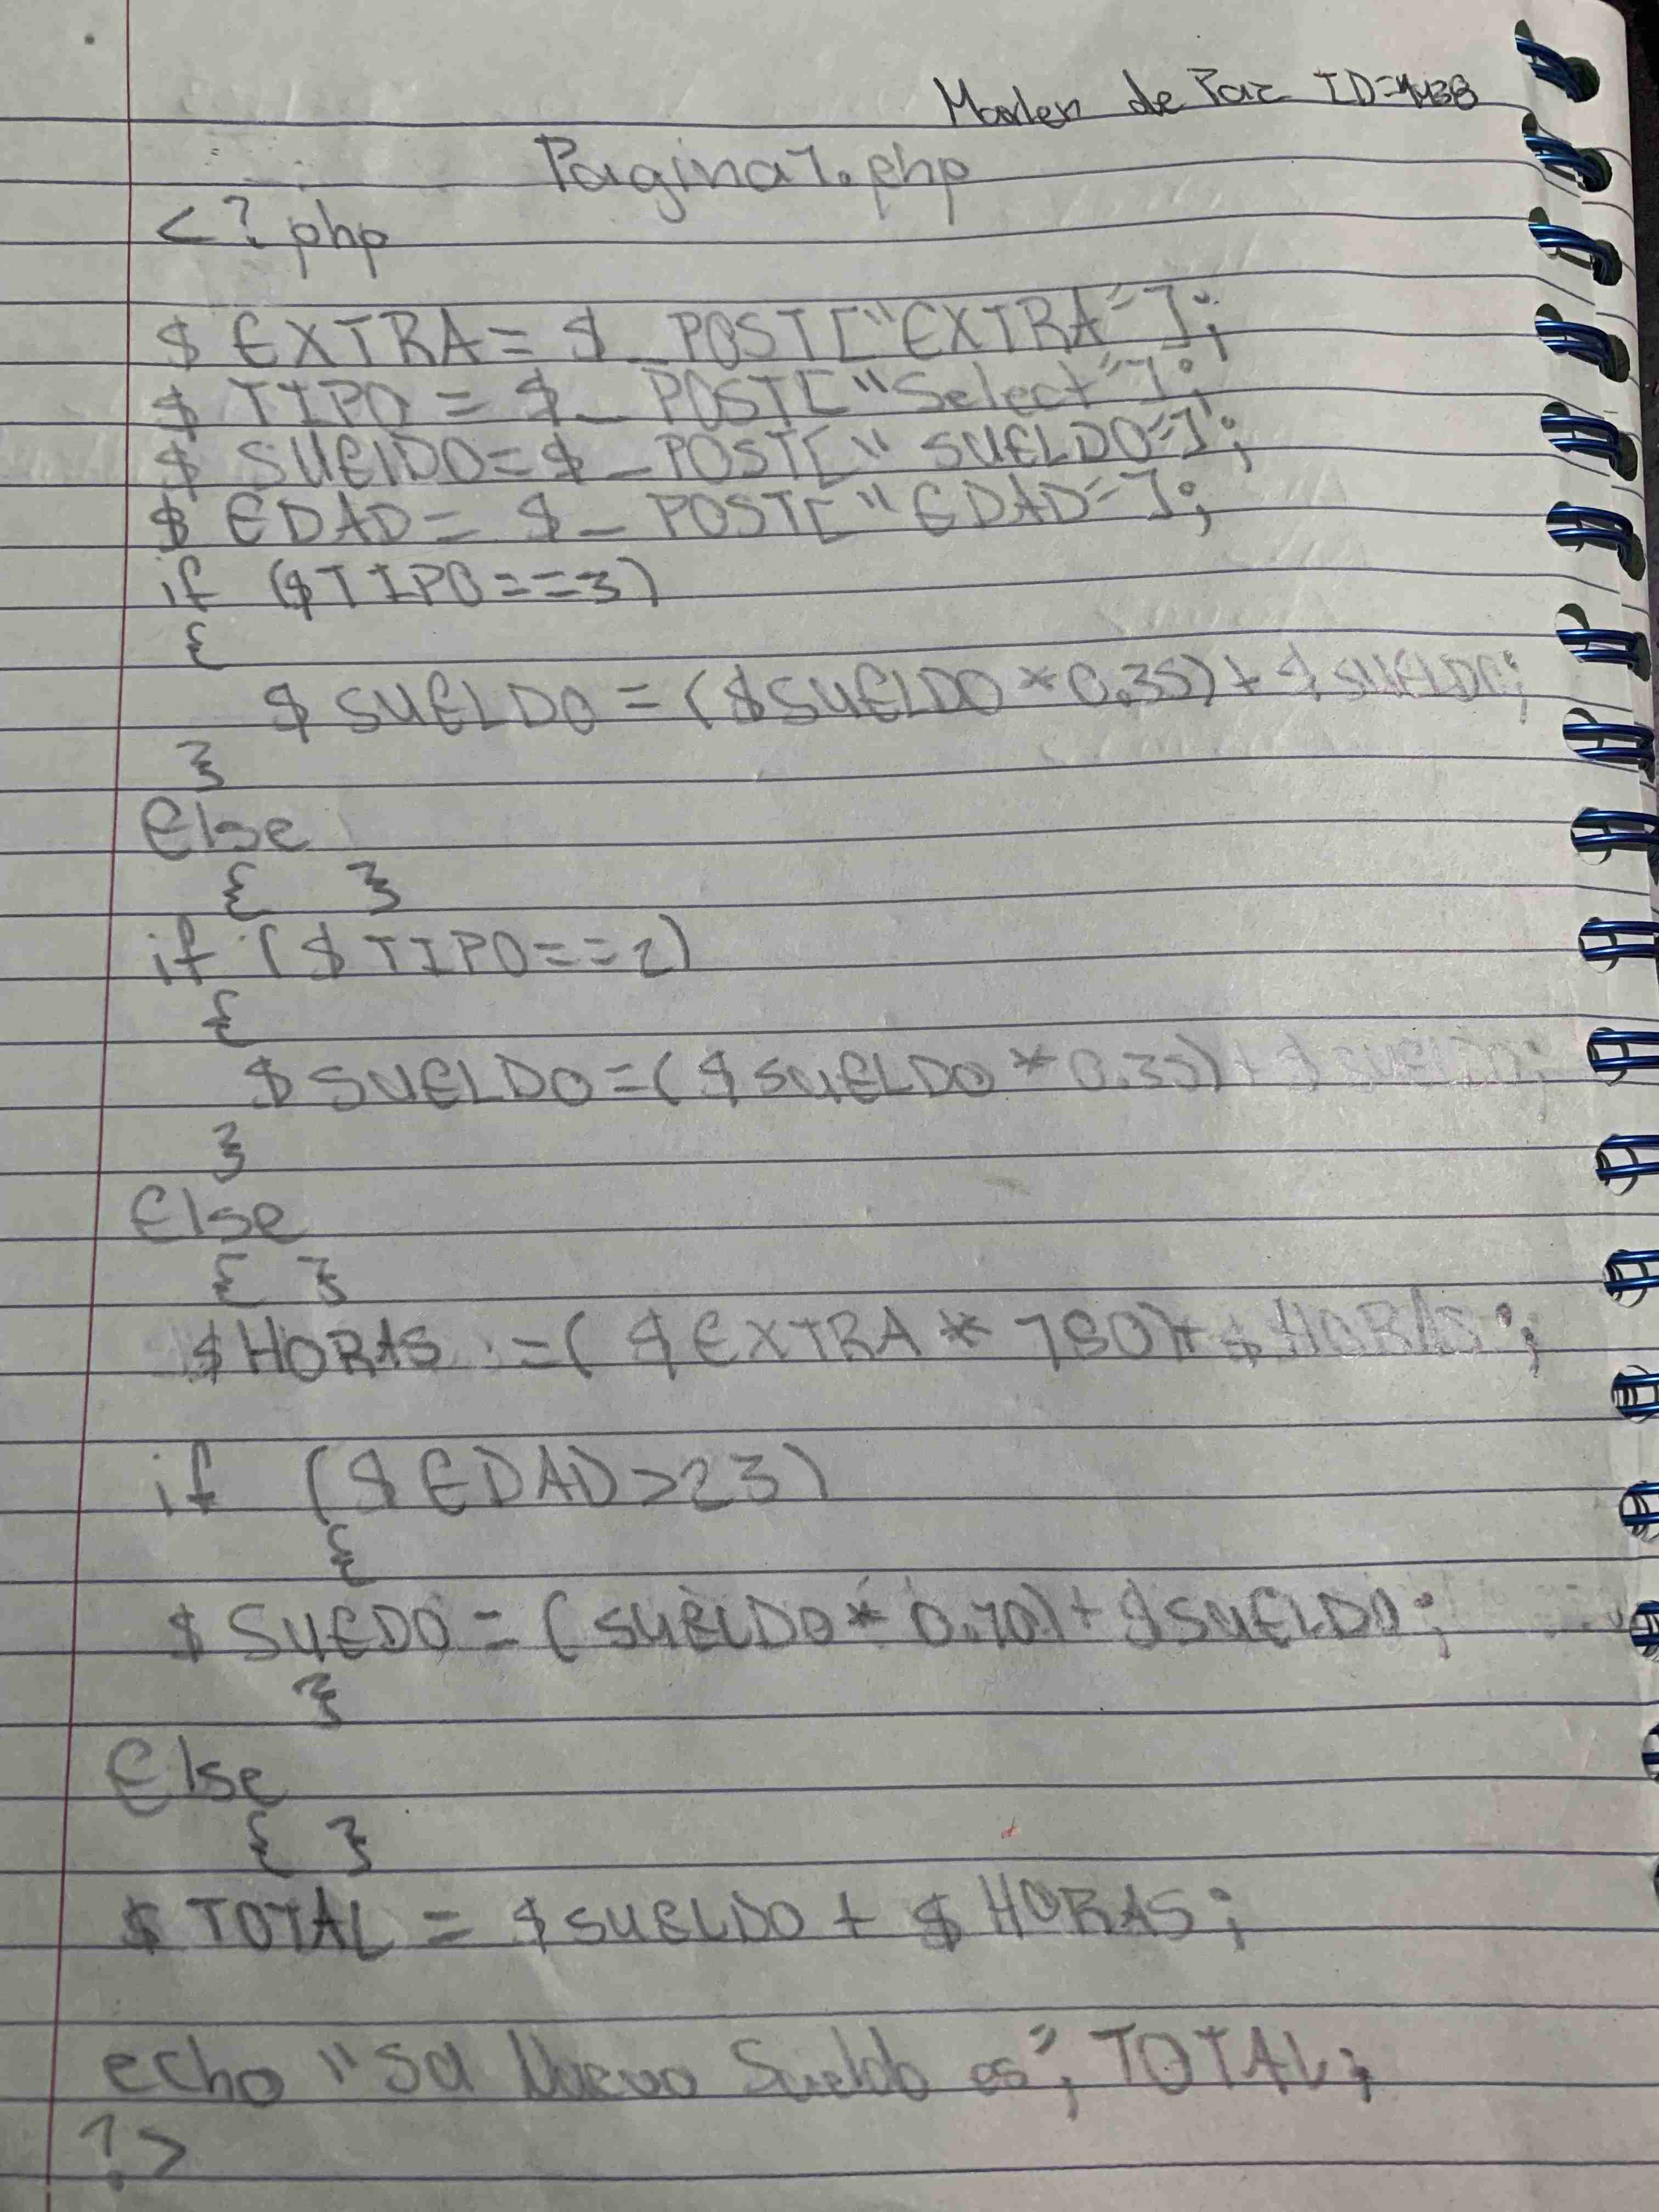 de Paz
Pagina1.php
<?php
$ EXTRA = $ _ POST["EXTRA"];
$ TIPO = $ _ POST["Select"];
$ SUElDO = $ _ POST[" SUELDO"];
$ EDAD = $ _ POST["EDAD"];
if ($TIPO==3)
{
$ SUELDO = ($SUELDO * 0.35) + $ SUELDO;
}
Else
{ }
if ($ TIPO==2)
{
$ SUELDO = ($ SUELDO * 0.35) + $ SUELDO;
}
Else
{ }
$ HORAS = ( $ EXTRA * 150) + $ HORAS ;
if ($ EDAD>23)
{
$ SUEDO = (SUELDO * 0.10) + $SUELDO;
}
Else
{ }
$ TOTAL = $ SUELDO + $ HORAS;
echo "su Nuevo Sueldo es", TOTAL;
?>